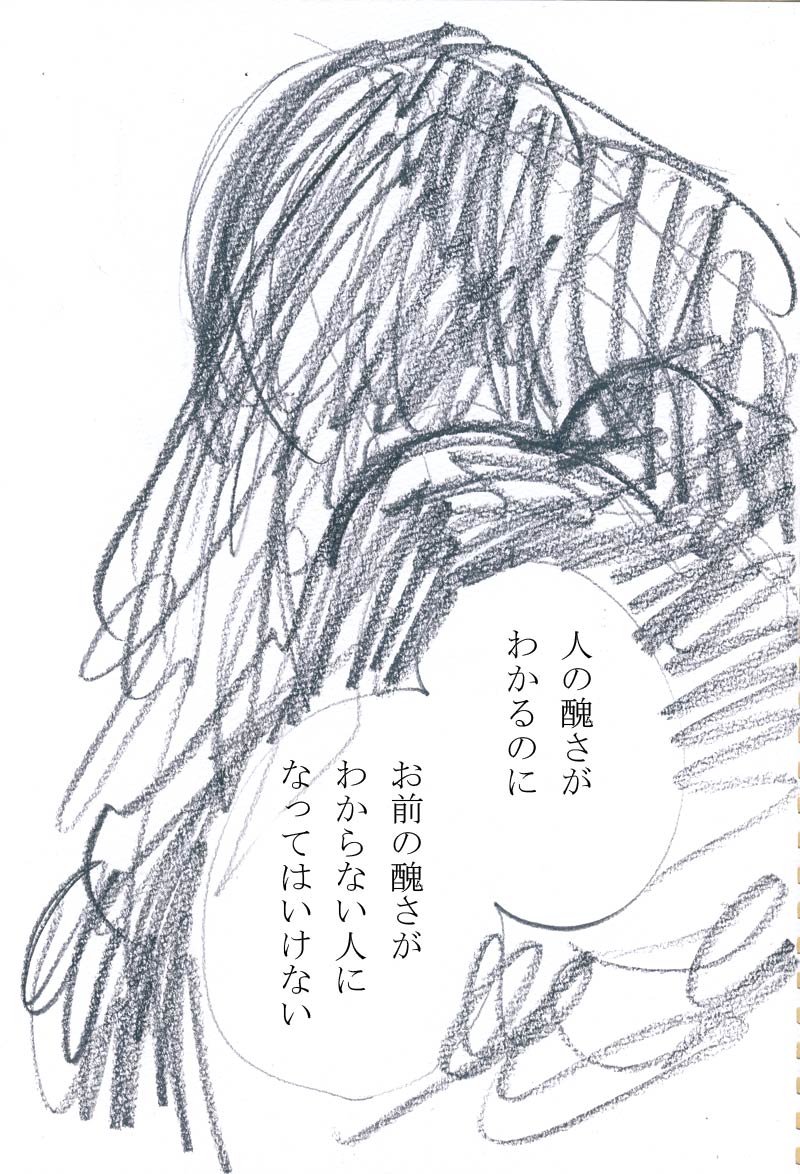 人の醜さが
わかるのに
お前の醜さが
わからない人に
なってはいけない